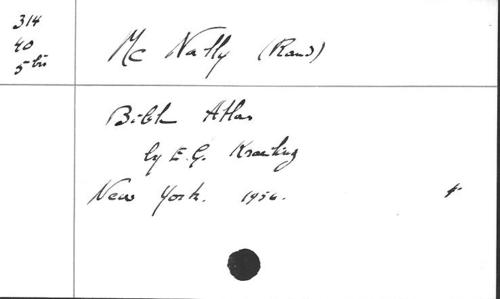 314
40
5 bis
Mc Nally (Rand)
Bible Atlas
by E.G. Kraeling
New York. 1956.